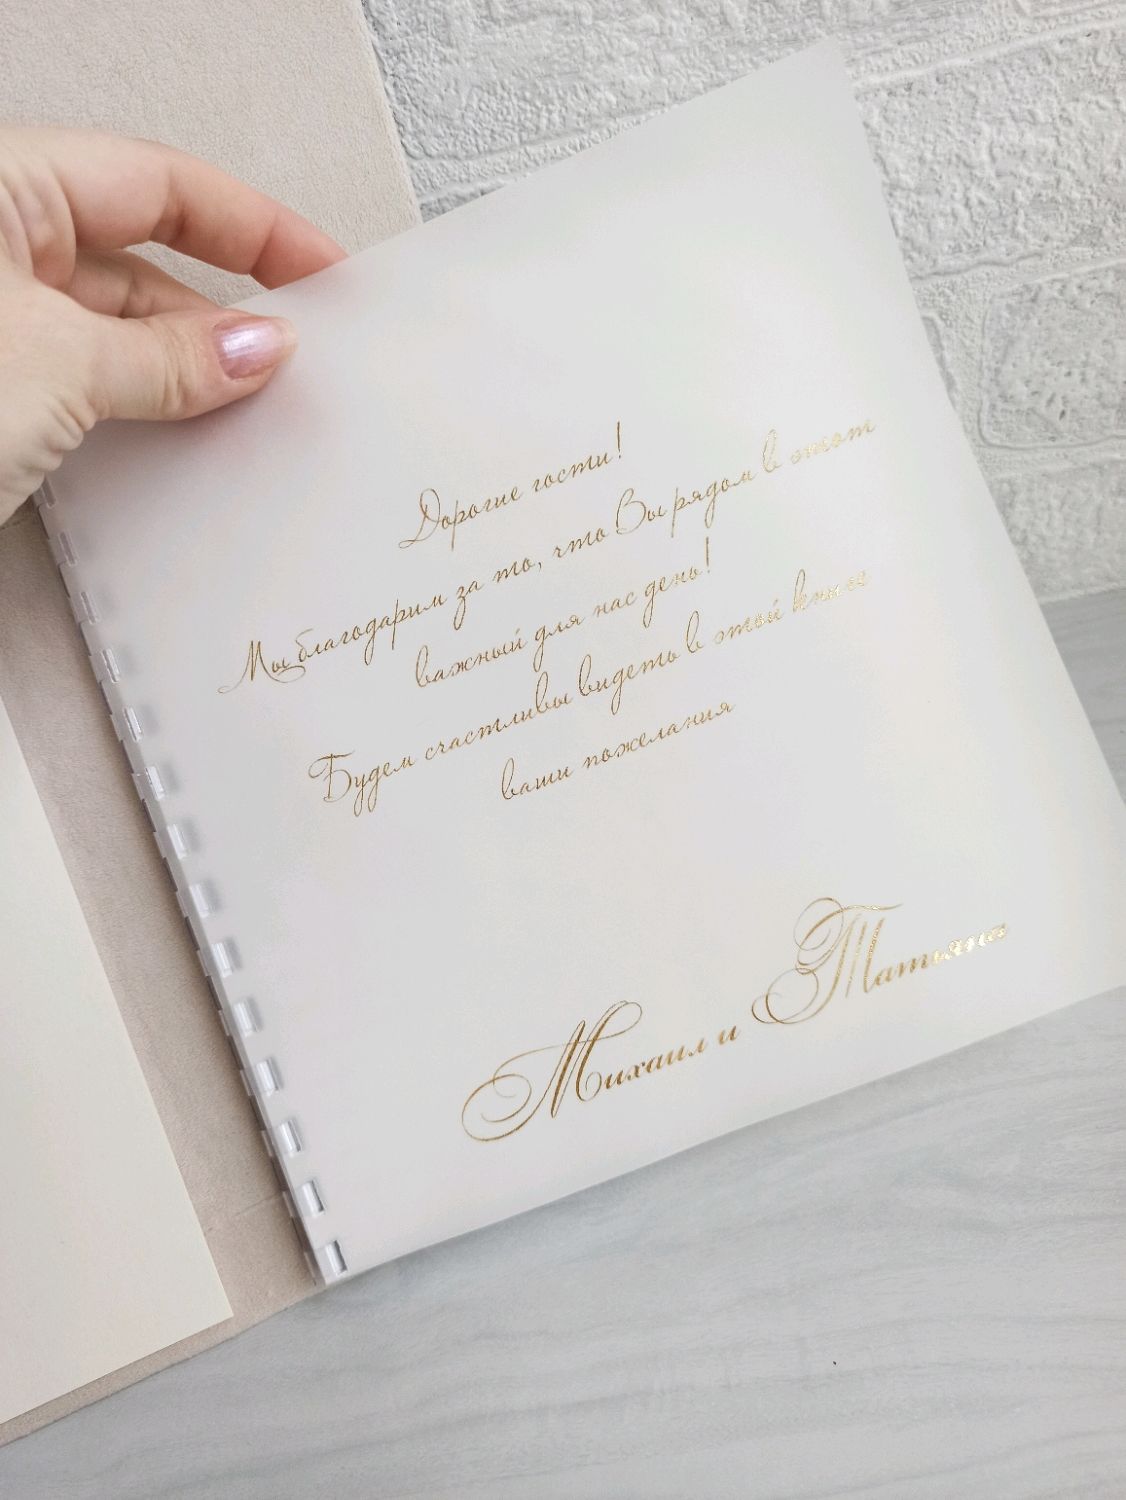 Дорогие гости!
Мы благодарим за то, что Вы рядом в этот
важный для нас день!
Будем счастливы видеть в этой книге
ваши пожелания
Михаил и Татьяна